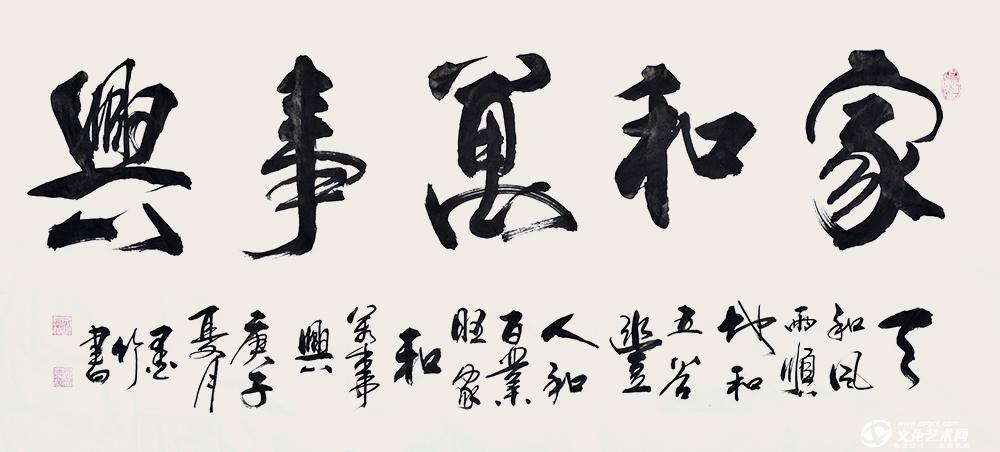 家和萬事興
天
和風
雨順
地和
五谷
豐
人和
百業
旺家
和
萬事
興
庚子
夏月
墨
竹
書
文化艺术网